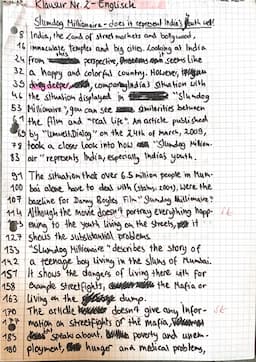 Klausur Nr. 2 - Englisch
Slumdog Millionaire - does it represent India's Youth well?
8 India, the Land of street markets and bollywood,
16 immaculate Temples and big cities. Looking at India
24 from this perspective, it seems like
32 a happy and colorful country. However,
35 digg deeper, comparing India's situation with
44 the situation displayed in "Slumdog
53 Millionaire", you can see similarities between
61 the film and "real life". An article published
69 by "Umwelt Dialog" on the 24th of march, 2009,
78 took a closer look into how "Slumdog Million-
83 air" represents India, especially Indias youth.
91 The situation that over 6.5 million people in Mum-
100 bai alone have to deal with were the
107 baseline for Danny Boyles Film "Slumdog Millionaire"
114 Although the movie doesn't portray everything happ-
ening to the youth living on the streets, it
127 shows the substantial problems.
135 "Slumdog Millionaire" describes the story of
142 a teenage boy living in the slums of Mumbai.
151 It shows the dangers of living there with for
158 example streetfights, the Mafia or
163 living on the dump.
170 The article doesn't give any infor-
mation on streetfights or the mafia,
185 speaks about poverty and unem-
190 ployment, hunger and medical problems,